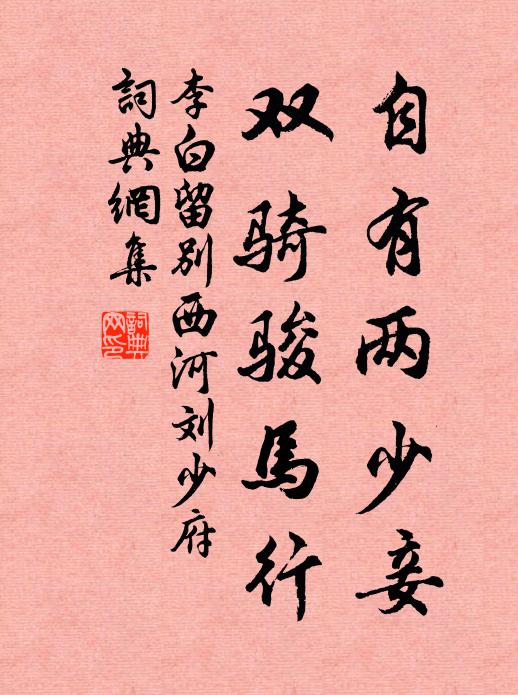 自有两少妾
双骑骏馬行
李白留別西河刘少府
詞典網集
詞典网印